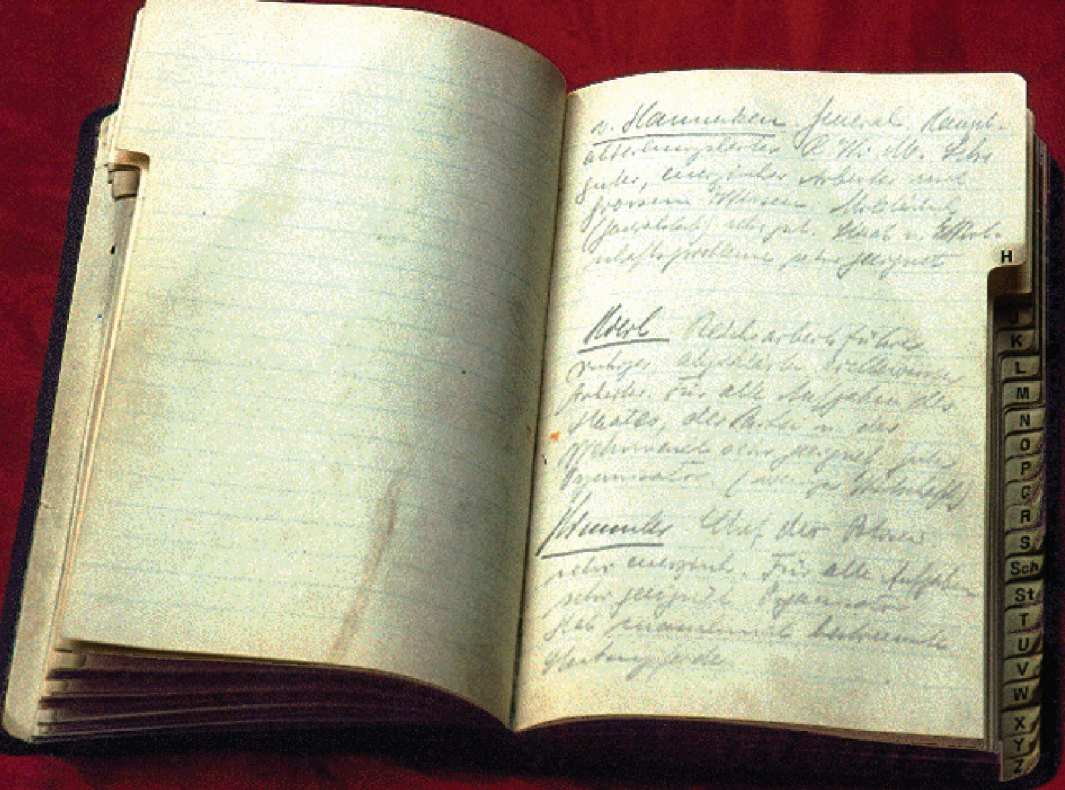 v. Hanneken General. Haupt-
abteilungsleiter R. Wi. M. Sehr
guter, energischer Arbeiter mit
grossem Wissen
sehr gut. Staat u. Wirt-
schaftsprobleme sehr geeignet
Hierl Reichsarbeitsführer
ruhiger, abgeklärter
Arbeiter. Für alle Aufgaben des
Staates, der Partei u. der
Wehrmacht sehr geeignet guter
Organisator. (weniger Wirtschaft)
Himmler Chef der Polizei
sehr energisch. Für alle Aufgaben
sehr geeignet Organisator
Hat bestimmte
H
J
K
L
M
N
O
P
R
S
Sch
St
T
U
V
W
X
Y
Z